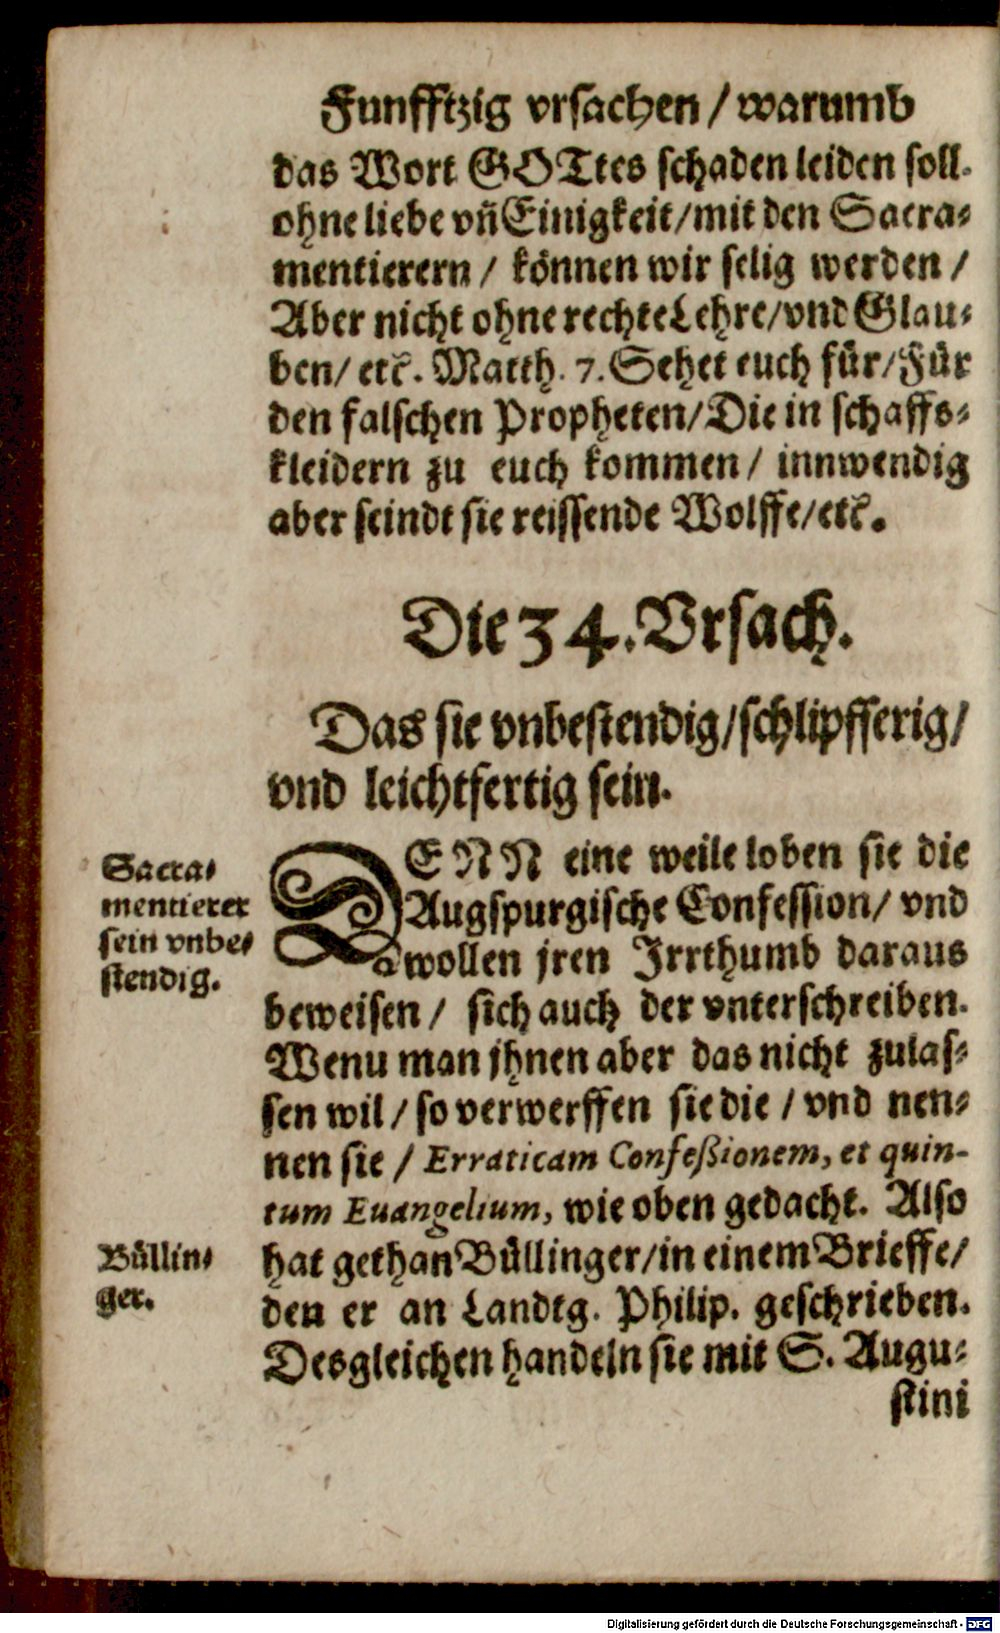 Funfftzig vrsachen / warumb
das Wort GOTtes schaden leiden soll.
ohne liebe vñ Einigkeit/mit den Sacra-
mentierern / können wir selig werden /
Aber nicht ohne rechte Lehre/vnd Glau-
ben/ etc. Matth. 7. Sehet euch für/Für
den falschen Propheten/Die in schaffs-
kleidern zu euch kommen/ innwendig
aber seindt sie reissende Wolffe/etc.
Die 34. Vrsach.
Das sie vnbestendig/schlipfferig/
vnd leichtfertig sein.
Sacra-
mentierer
sein vnbe-
stendig.
DENN eine weile loben sie die
Augspurgische Confession/ vnd
wollen jren Irrthumb daraus
beweisen/ sich auch der vnterschreiben.
Wenu man jhnen aber das nicht zulas-
sen wil/ so verwerffen sie die / vnd nen-
nen sie / Erraticam Confeßionem, et quin-
tum Euangelium, wie oben gedacht. Also
Büllin-
ger.
hat gethan Büllinger/in einem Brieffe/
den er an Landtg. Philip. geschrieben.
Desgleichen handeln sie mit S. Augu-
stini
Digitalisierung gefördert durch die Deutsche Forschungsgemeinschaft - DFG